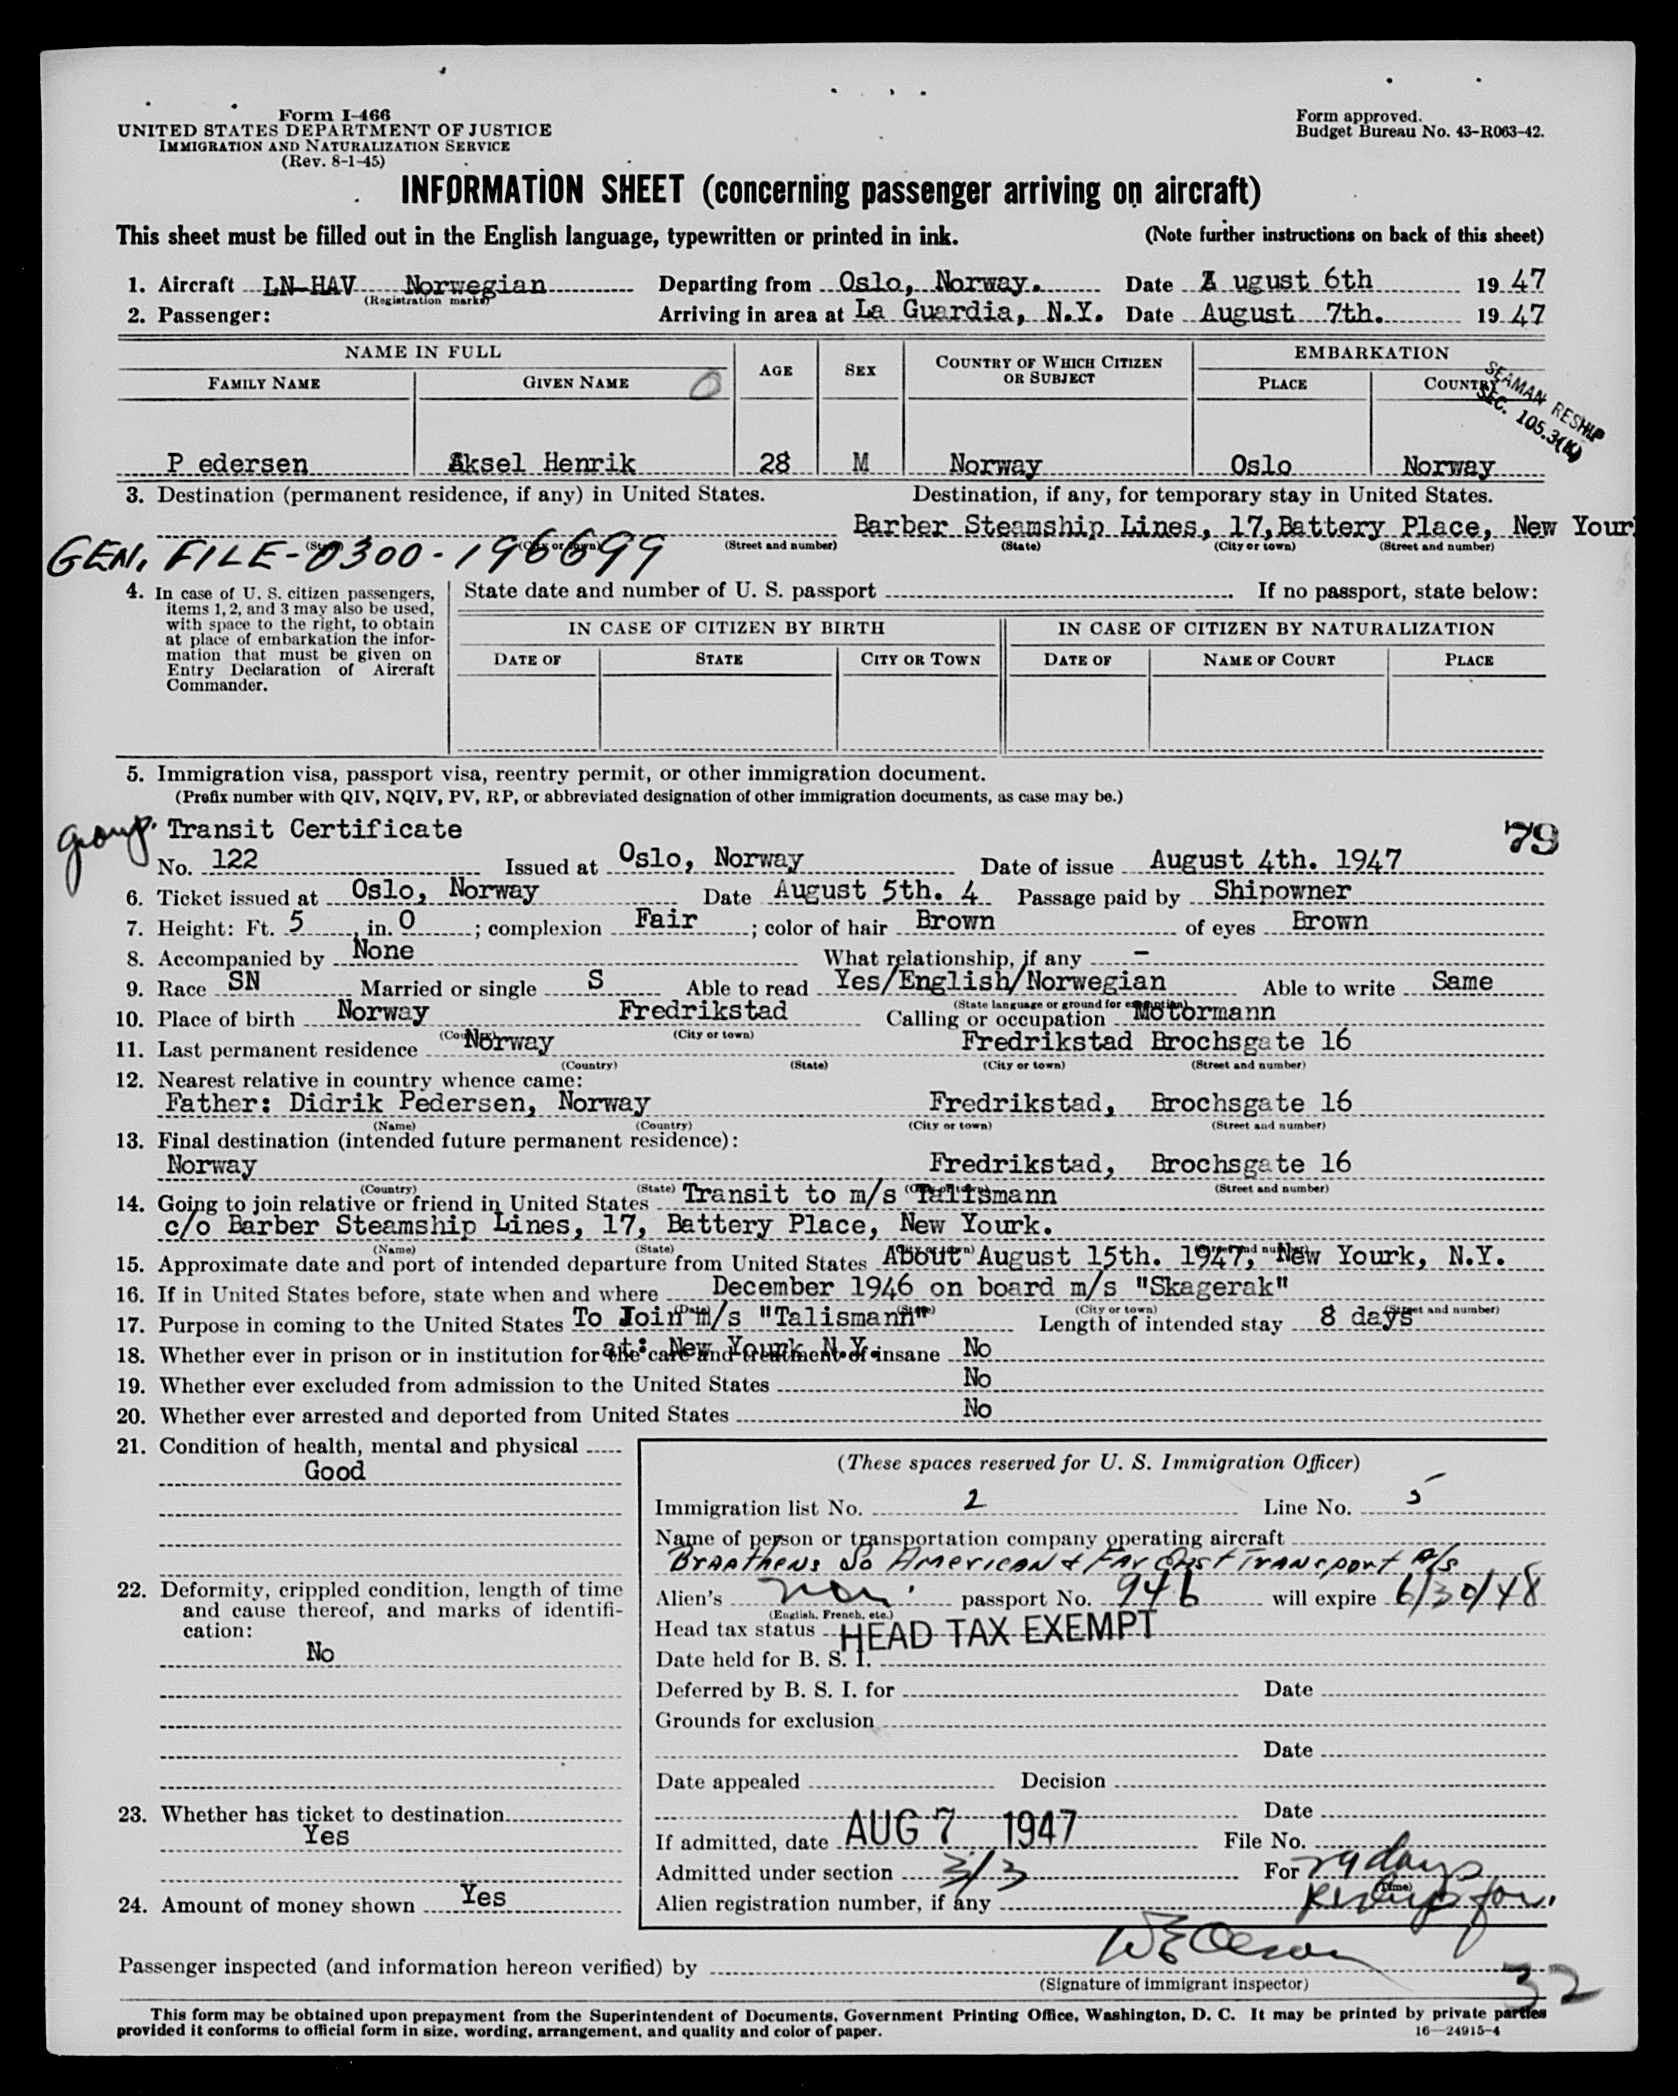 Form I-466
UNITED STATES DEPARTMENT OF JUSTICE
IMMIGRATION AND NATURALIZATION SERVICE
(Rev. 8-1-45)
Form approved.
Budget Bureau No. 43-R063-42.
INFORMATION SHEET (concerning passenger arriving on aircraft)
This sheet must be filled out in the English language, typewritten or printed in ink. (Note further instructions on back of this sheet)
1. Aircraft LN-HAV Norwegian Departing from Oslo, Norway. Date A ugust 6th 19 47
(Registration marks)
2. Passenger: Arriving in area at La Guardia, N.Y. Date August 7th. 19 47
NAME IN FULL AGE SEX COUNTRY OF WHICH CITIZEN OR SUBJECT EMBARKATION
FAMILY NAME GIVEN NAME PLACE COUNTRY
SEAMAN RESHIP
SEC. 105.3(K)
P edersen Aksel Henrik 28 M Norway Oslo Norway
3. Destination (permanent residence, if any) in United States. Destination, if any, for temporary stay in United States.
Barber Steamship Lines, 17, Battery Place, New Your
(State) (City or town) (Street and number) (State) (City or town) (Street and number)
GEN. FILE-0300-196699
4. In case of U. S. citizen passengers, items 1, 2, and 3 may also be used, with space to the right, to obtain at place of embarkation the information that must be given on Entry Declaration of Aircraft Commander.
State date and number of U. S. passport If no passport, state below:
IN CASE OF CITIZEN BY BIRTH IN CASE OF CITIZEN BY NATURALIZATION
DATE OF STATE CITY OR TOWN DATE OF NAME OF COURT PLACE
5. Immigration visa, passport visa, reentry permit, or other immigration document.
(Prefix number with QIV, NQIV, PV, RP, or abbreviated designation of other immigration documents, as case may be.)
group. Transit Certificate 79
No. 122 Issued at Oslo, Norway Date of issue August 4th. 1947
6. Ticket issued at Oslo, Norway Date August 5th. 4 Passage paid by Shipowner
7. Height: Ft. 5, in. 0; complexion Fair; color of hair Brown of eyes Brown
8. Accompanied by None What relationship, if any -
9. Race SN Married or single S Able to read Yes/English/Norwegian Able to write Same
(State language or ground for exemption)
10. Place of birth Norway Fredrikstad Calling or occupation Motormann
(Country) (City or town)
11. Last permanent residence Norway Fredrikstad Brochsgate 16
(Country) (State) (City or town) (Street and number)
12. Nearest relative in country whence came:
Father: Didrik Pedersen, Norway Fredrikstad, Brochsgate 16
(Name) (Country) (City or town) (Street and number)
13. Final destination (intended future permanent residence):
Norway Fredrikstad, Brochsgate 16
(Country) (State) (City or town) (Street and number)
14. Going to join relative or friend in United States Transit to m/s Talismann
c/o Barber Steamship Lines, 17, Battery Place, New Yourk.
(Name) (State) (City or town) (Street and number)
15. Approximate date and port of intended departure from United States About August 15th. 1947, New Yourk, N.Y.
16. If in United States before, state when and where December 1946 on board m/s "Skagerak"
(Date) (State) (City or town) (Street and number)
17. Purpose in coming to the United States To Join m/s "Talismann" Length of intended stay 8 days
at: New Yourk N.Y.
18. Whether ever in prison or in institution for the care and treatment of insane No
19. Whether ever excluded from admission to the United States No
20. Whether ever arrested and deported from United States No
21. Condition of health, mental and physical
Good
22. Deformity, crippled condition, length of time and cause thereof, and marks of identification:
No
23. Whether has ticket to destination
Yes
24. Amount of money shown Yes
(These spaces reserved for U. S. Immigration Officer)
Immigration list No. 2 Line No. 5
Name of person or transportation company operating aircraft
Braathens So American & Far East Transport A/S
Alien's Nor. passport No. 946 will expire 6/30/48
(English, French, etc.)
Head tax status HEAD TAX EXEMPT
Date held for B. S. I.
Deferred by B. S. I. for Date
Grounds for exclusion
Date
Date appealed Decision
Date
If admitted, date AUG 7 1947 File No.
Admitted under section 3/3 For 29 days
(Time)
Alien registration number, if any Reship for.
Passenger inspected (and information hereon verified) by W E Olson
(Signature of immigrant inspector)
32
This form may be obtained upon prepayment from the Superintendent of Documents, Government Printing Office, Washington, D. C. It may be printed by private parties
provided it conforms to official form in size, wording, arrangement, and quality and color of paper.
16—24915-4